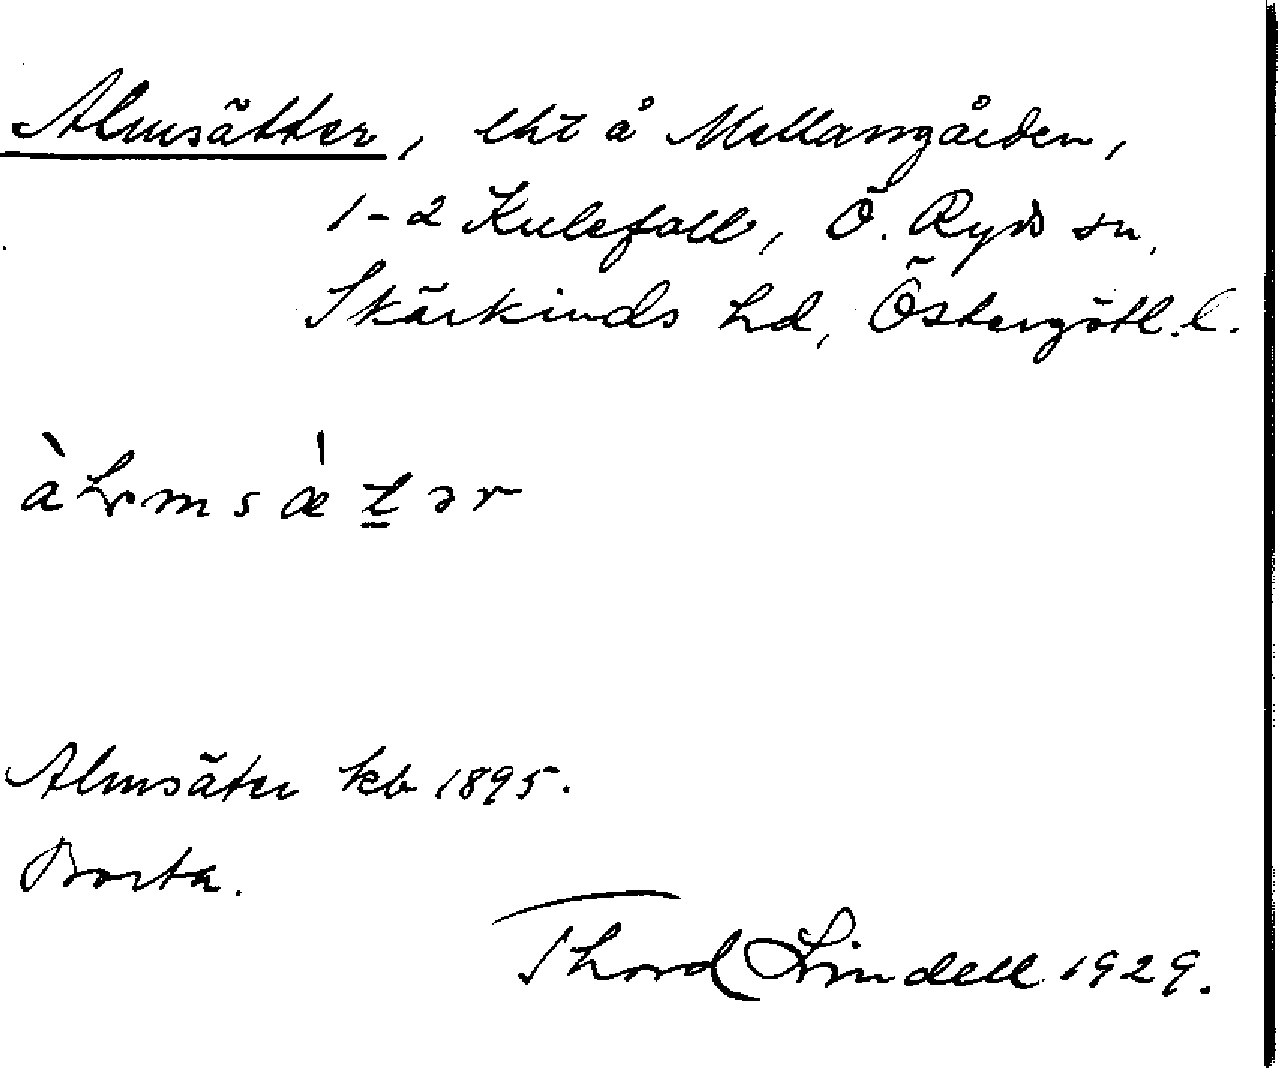 Almsätter, lht å Mellangården,
1-2 Kulefall, Ö. Ryds sn,
Skärkinds hd, Östergötl. l.
Almsäter kb 1895.
Borta.
Thord Lindell 1929.